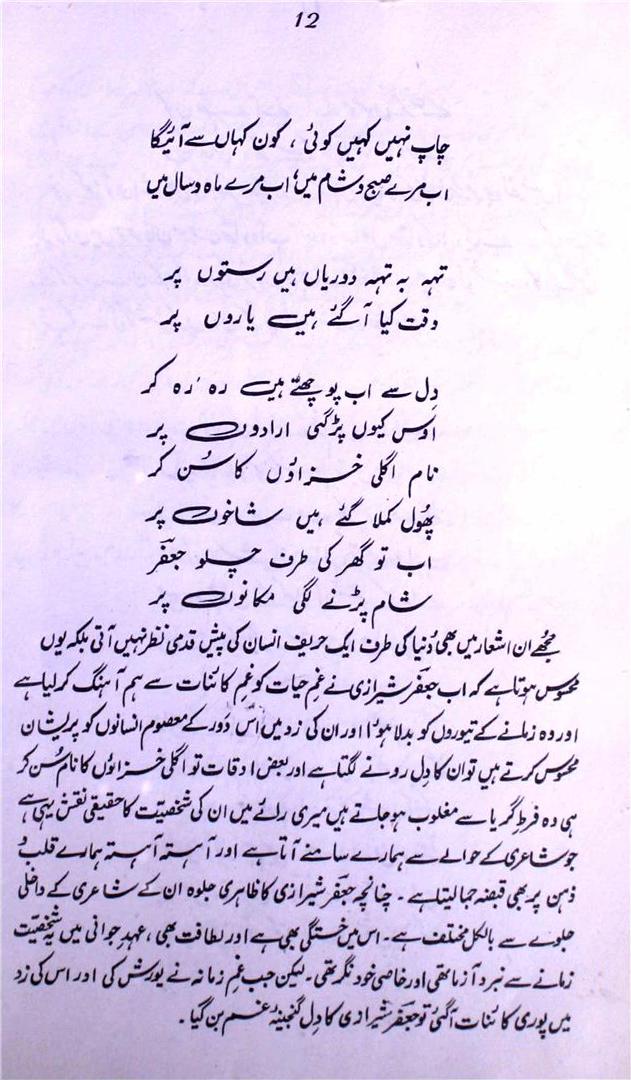 12
چاپ نہیں کہیں کوئی ، کون کہاں سے آئیگا
اب مرے صبح و شام میں، اب مرے ماہ و سال میں
تہہ بہ تہہ دوریاں ہیں رستوں پر
وقت کیا آ گئے ہیں یاروں پر
دِل سے اب پوچھتے ہیں رہ رہ کر
اوس کیوں پڑگئی ارادوں پر
نام اگلی خزاؤں کا سُن کر
پھُول کملا گئے ہیں شاخوں پر
اب تو گھر کی طرف چلو جعفؔر
شام پڑنے لگی مکانوں پر
مجھے ان اشعار میں بھی دُنیا کی طرف ایک حریف انسان کی پیش قدمی نظر نہیں آتی بلکہ یوں
محسُوس ہوتا ہے کہ اب جعفؔر شیرازی نے غمِ حیات کو غمِ کائنات سے ہم آہنگ کر لیا ہے
اور وہ زمانے کے تیوروں کو بدلا ہوُا اور ان کی زد میں اُس دَور کے معصوم انسانوں کو پریشان
محسُوس کرتے ہیں تو ان کا دِل رونے لگتا ہے اور بعض اوقات تو اگلی خزاؤں کا نام سُن کر
ہی وہ فرطِ گریا سے مغلوب ہو جاتے ہیں میری رائے میں ان کی شخصیّت کا حقیقی نقش یہی ہے
جو شاعری کے حوالے سے ہمارے سامنے آتا ہے اور آہستہ آہستہ ہمارے قلب و
ذہن پر بھی قبضہ جما لیتا ہے ۔ چنانچہ جعفؔر شیرازی کا ظاہری جلوہ ان کے شاعری کے داخلی
جلوے سے بالکل مختلف ہے ۔ اس میں خستگی بھی ہے اور لطافت بھی ، عہدِ جوانی میں یہ شخصیّت
زمانے سے نبرد آزما تھی اور خاصی خود نگر تھی ۔ لیکن جب غمِ زمانہ نے یورش کی اور اس کی زد
میں پوری کائنات آگئی تو جعفؔر شیرازی کا دِل گنجینۂ غم بن گیا ۔